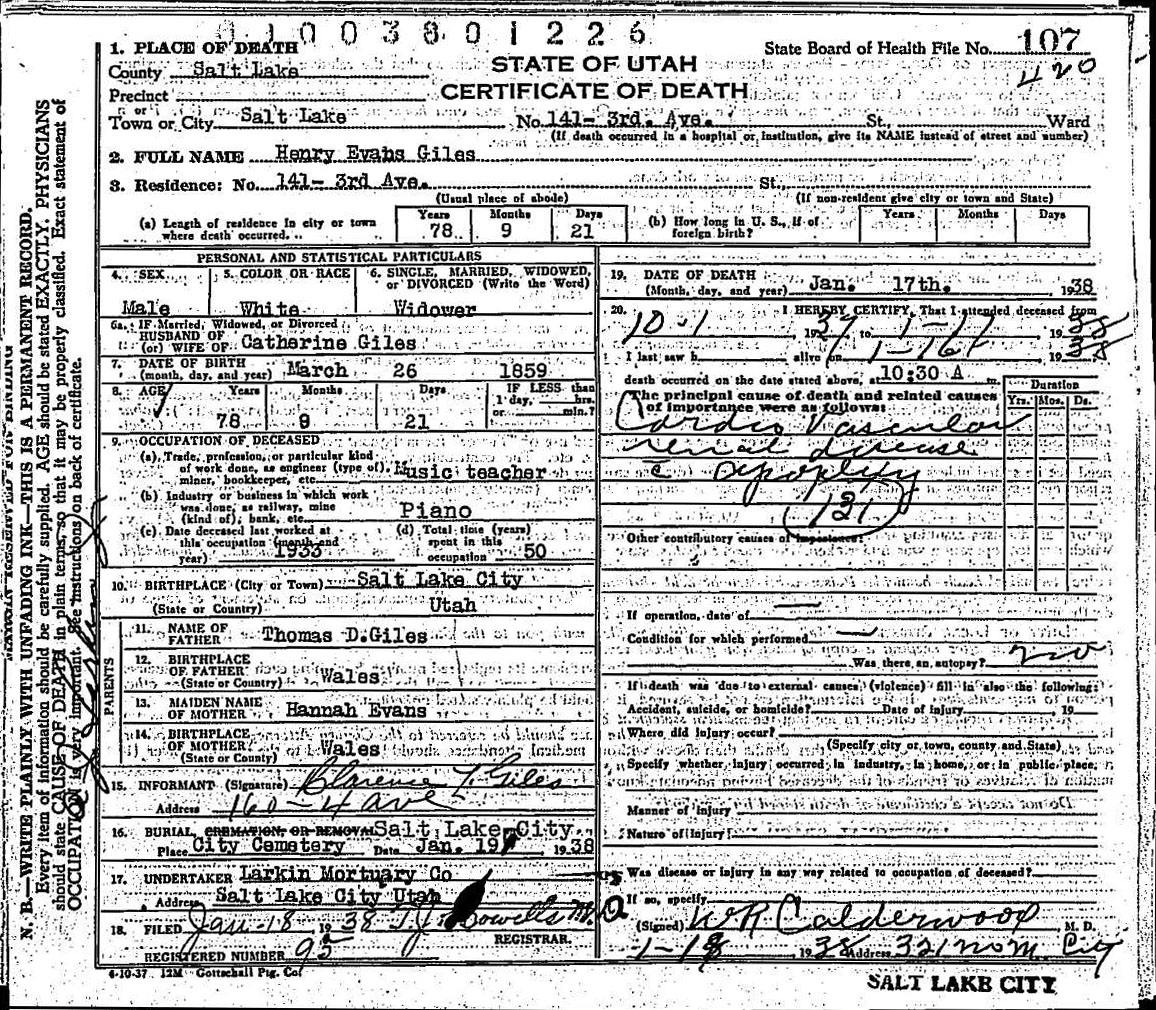 0 1 0 0 3 8 0 1 2 2 6
1. PLACE OF DEATH
State Board of Health File No. 107
420
County Salt Lake
STATE OF UTAH
CERTIFICATE OF DEATH
Precinct
or
Town or City Salt Lake No. 141- 3rd. Ave. St., Ward
(If death occurred in a hospital or institution, give its NAME instead of street and number)
2. FULL NAME Henry Evans Giles
3. Residence: No. 141- 3rd Ave. St.,
(Usual place of abode) (If non-resident give city or town and State)
(a) Length of residence in city or town where death occurred. Years 78 Months 9 Days 21
(b) How long in U. S., if of foreign birth? Years Months Days
PERSONAL AND STATISTICAL PARTICULARS
4. SEX
Male
5. COLOR OR RACE
White
6. SINGLE, MARRIED, WIDOWED,
or DIVORCED (Write the Word)
Widower
6a. IF Married, Widowed, or Divorced
HUSBAND OF
(or) WIFE OF Catherine Giles
7. DATE OF BIRTH
(month, day, and year) March 26 1859
8. AGE Years Months Days IF LESS than
1 day, hrs.
or min.?
78 9 21
9. OCCUPATION OF DECEASED
(a) Trade, profession, or particular kind
of work done, as engineer (type of), Music teacher
miner, bookkeeper, etc.
(b) Industry or business in which work
was done, as railway, mine Piano
(kind of), bank, etc.
(c) Date deceased last worked at
this occupation (month and
year) 1933
(d) Total time (years)
spent in this
occupation 50
10. BIRTHPLACE (City or Town) Salt Lake City
(State or Country) Utah
PARENTS
11. NAME OF
FATHER Thomas D. Giles
12. BIRTHPLACE
OF FATHER Wales
(State or Country)
13. MAIDEN NAME
OF MOTHER Hannah Evans
14. BIRTHPLACE
OF MOTHER Wales
(State or County)
15. INFORMANT (Signature) Clarence L Giles
Address 160 - 4 ave
16. BURIAL, CREMATION, OR REMOVAL Salt Lake City
Place City Cemetery Date Jan. 19 1938
17. UNDERTAKER Larkin Mortuary Co
Address Salt Lake City Utah
18. FILED Jan - 18 1938 T. J. Howells M.D.
REGISTRAR.
REGISTERED NUMBER 95
4-10-37 12M Gottschall Ptg. Co.
19. DATE OF DEATH
(Month, day, and year) Jan. 17th. 1938
20. I HEREBY CERTIFY, That I attended deceased from
10-1 1937 to 1-17 1938
I last saw h alive on 1-16 1938
death occurred on the date stated above, at 10:30 A m.
The principal cause of death and related causes
of importance were as follows:
Duration
Yrs. Mos. Ds.
Cardio Vascular
renal disease
c apoplexy
131
Other contributory causes of importance:
If operation, date of —
Condition for which performed —
Was there an autopsy? no
If death was due to external causes (violence) fill in also the following:
Accident, suicide, or homicide? Date of injury 19
Where did injury occur?
(Specify city or town, county and State)
Specify whether injury occurred in industry, in home, or in public place,
Manner of injury
Nature of injury
Was disease or injury in any way related to occupation of deceased?
If so, specify
(Signed) W R Calderwood M. D.
1-18 1938 Address 321 City
SALT LAKE CITY
N. B.—WRITE PLAINLY WITH UNFADING INK—THIS IS A PERMANENT RECORD.
Every item of information should be carefully supplied. AGE should be stated EXACTLY. PHYSICIANS
should state CAUSE OF DEATH in plain terms, so that it may be properly classified. Exact statement of
OCCUPATION is very important. See instructions on back of certificate.
MARGIN RESERVED FOR BINDING